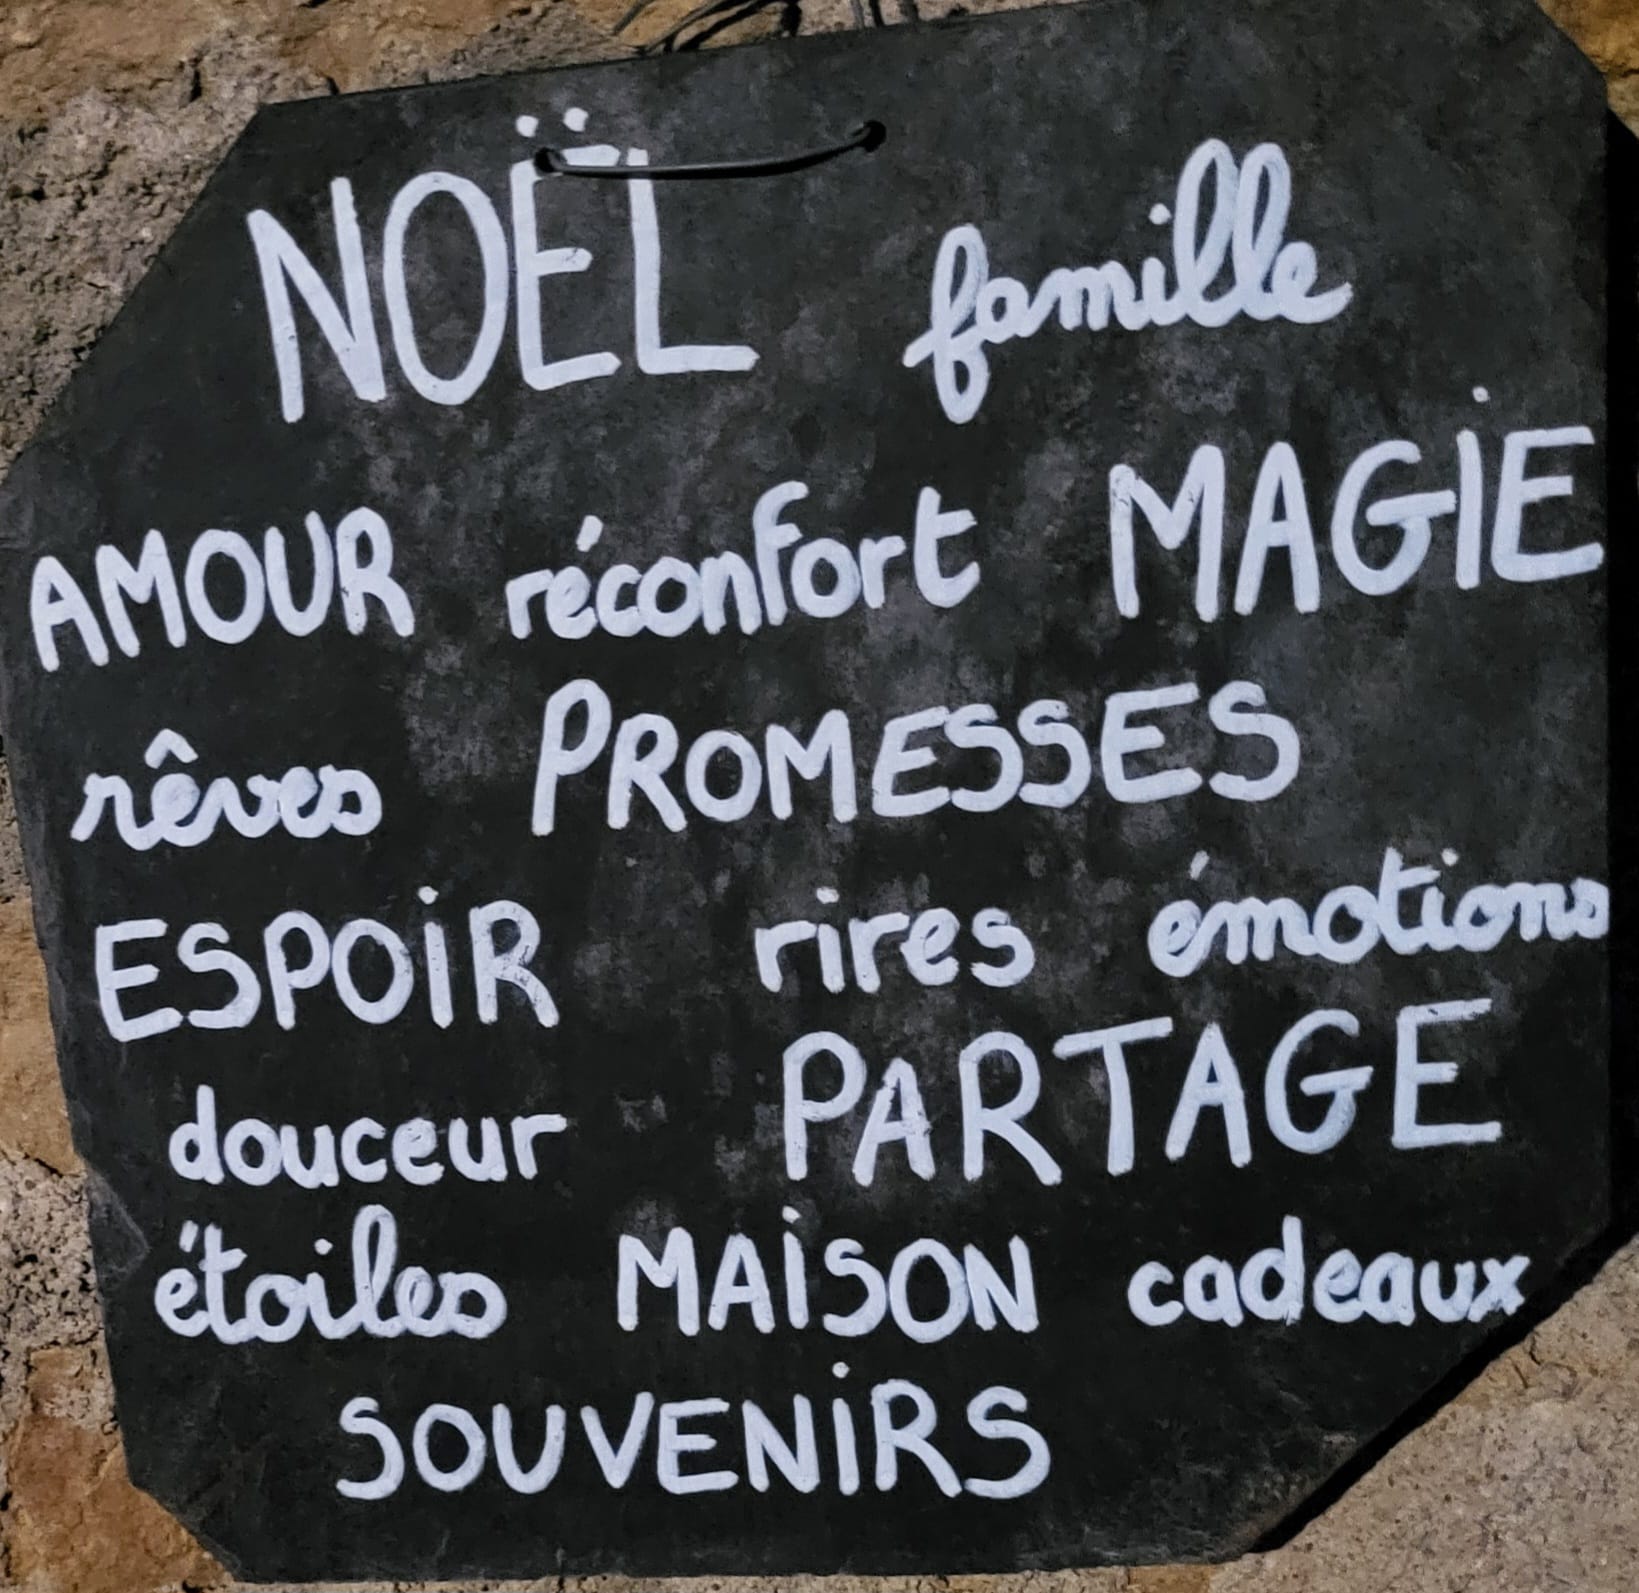 NOËL famille
AMOUR réconfort MAGiE
rêves PROMESSES
ESPOiR rires émotions
douceur PARTAGE
étoiles MAiSON cadeaux
SOUVENiRS